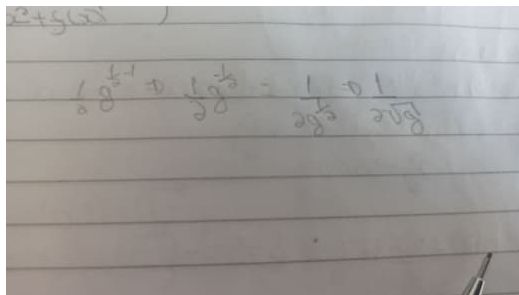 x²+5(x)² )
½ g^(½-1) ⇒ ½ g^(-½) = 1/(2g^(½)) ⇒ 1/(2√g)